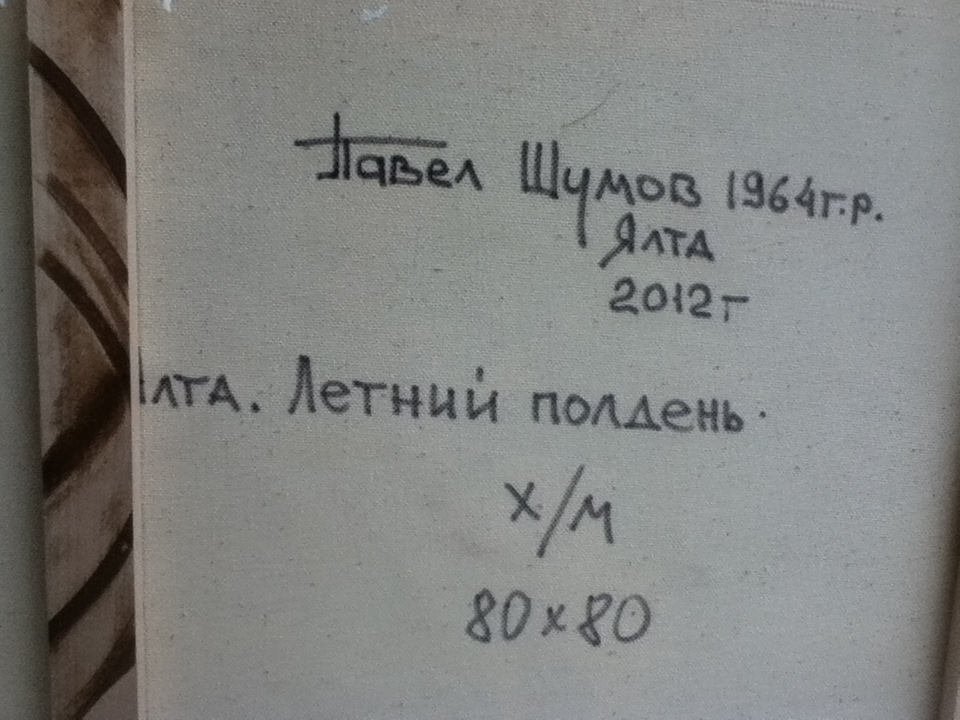 Павел Шумов 1964г.р.
Ялта
2012г
Ялта. Летний полдень.
х/м
80х80